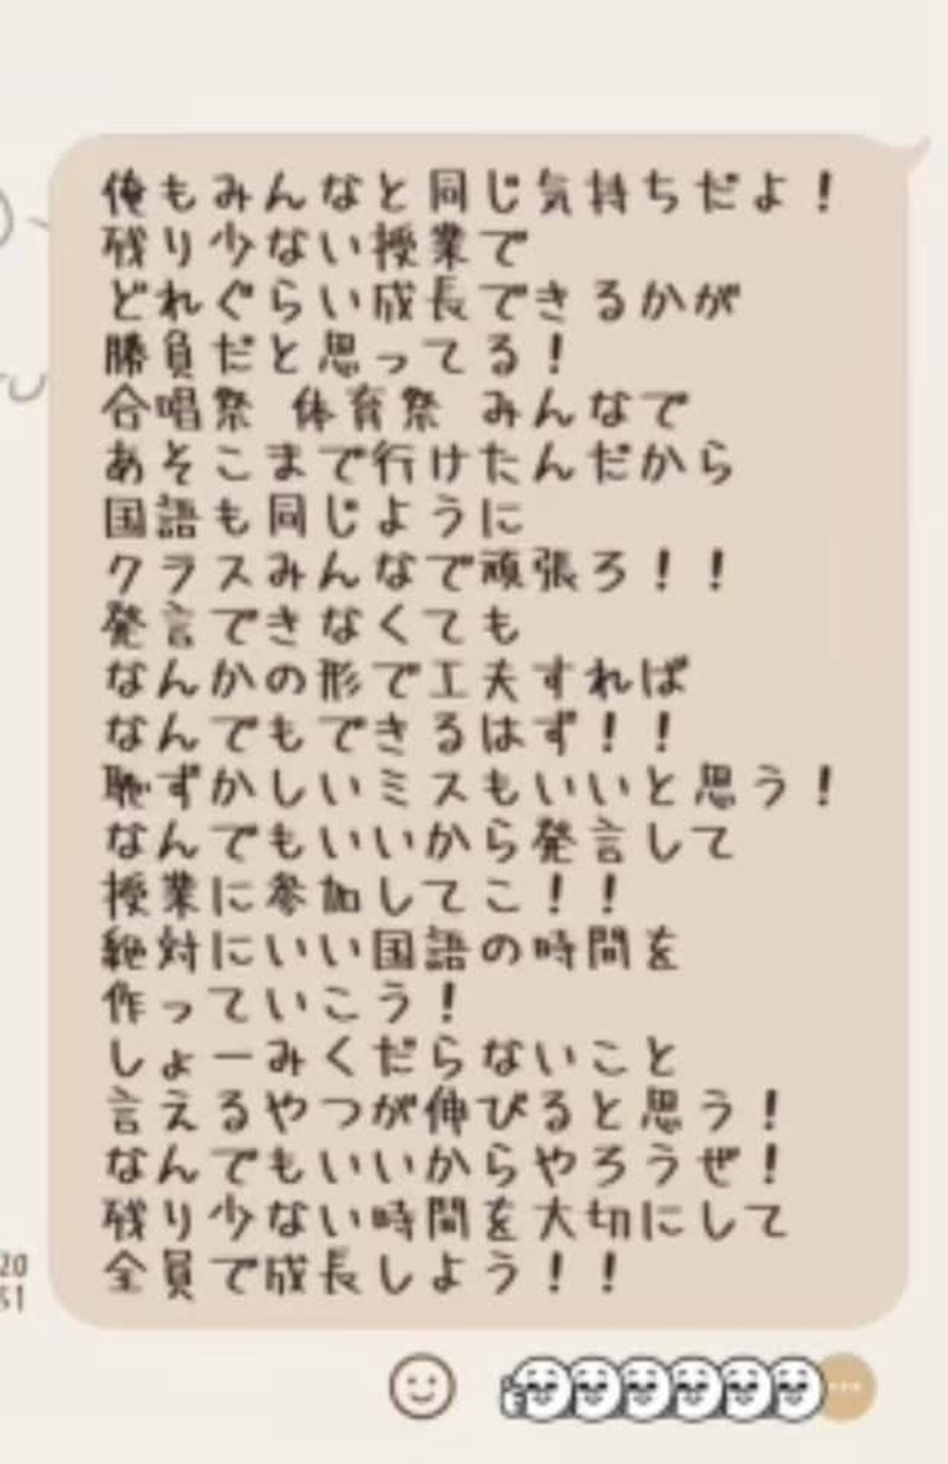 俺もみんなと同じ気持ちだよ！
残り少ない授業で
どれぐらい成長できるかが
勝負だと思ってる！
合唱祭 体育祭 みんなで
あそこまで行けたんだから
国語も同じように
クラスみんなで頑張ろ！！
発言できなくても
なんかの形で工夫すれば
なんでもできるはず！！
恥ずかしいミスもいいと思う！
なんでもいいから発言して
授業に参加してこ！！
絶対にいい国語の時間を
作っていこう！
しょーみくだらないこと
言えるやつが伸びると思う！
なんでもいいからやろうぜ！
残り少ない時間を大切にして
全員で成長しよう！！
20
51